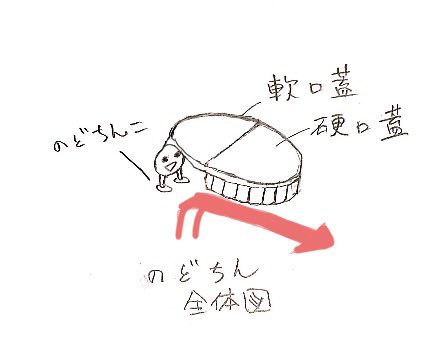 軟口蓋
硬口蓋
のどちんこ
のどちん
全体図